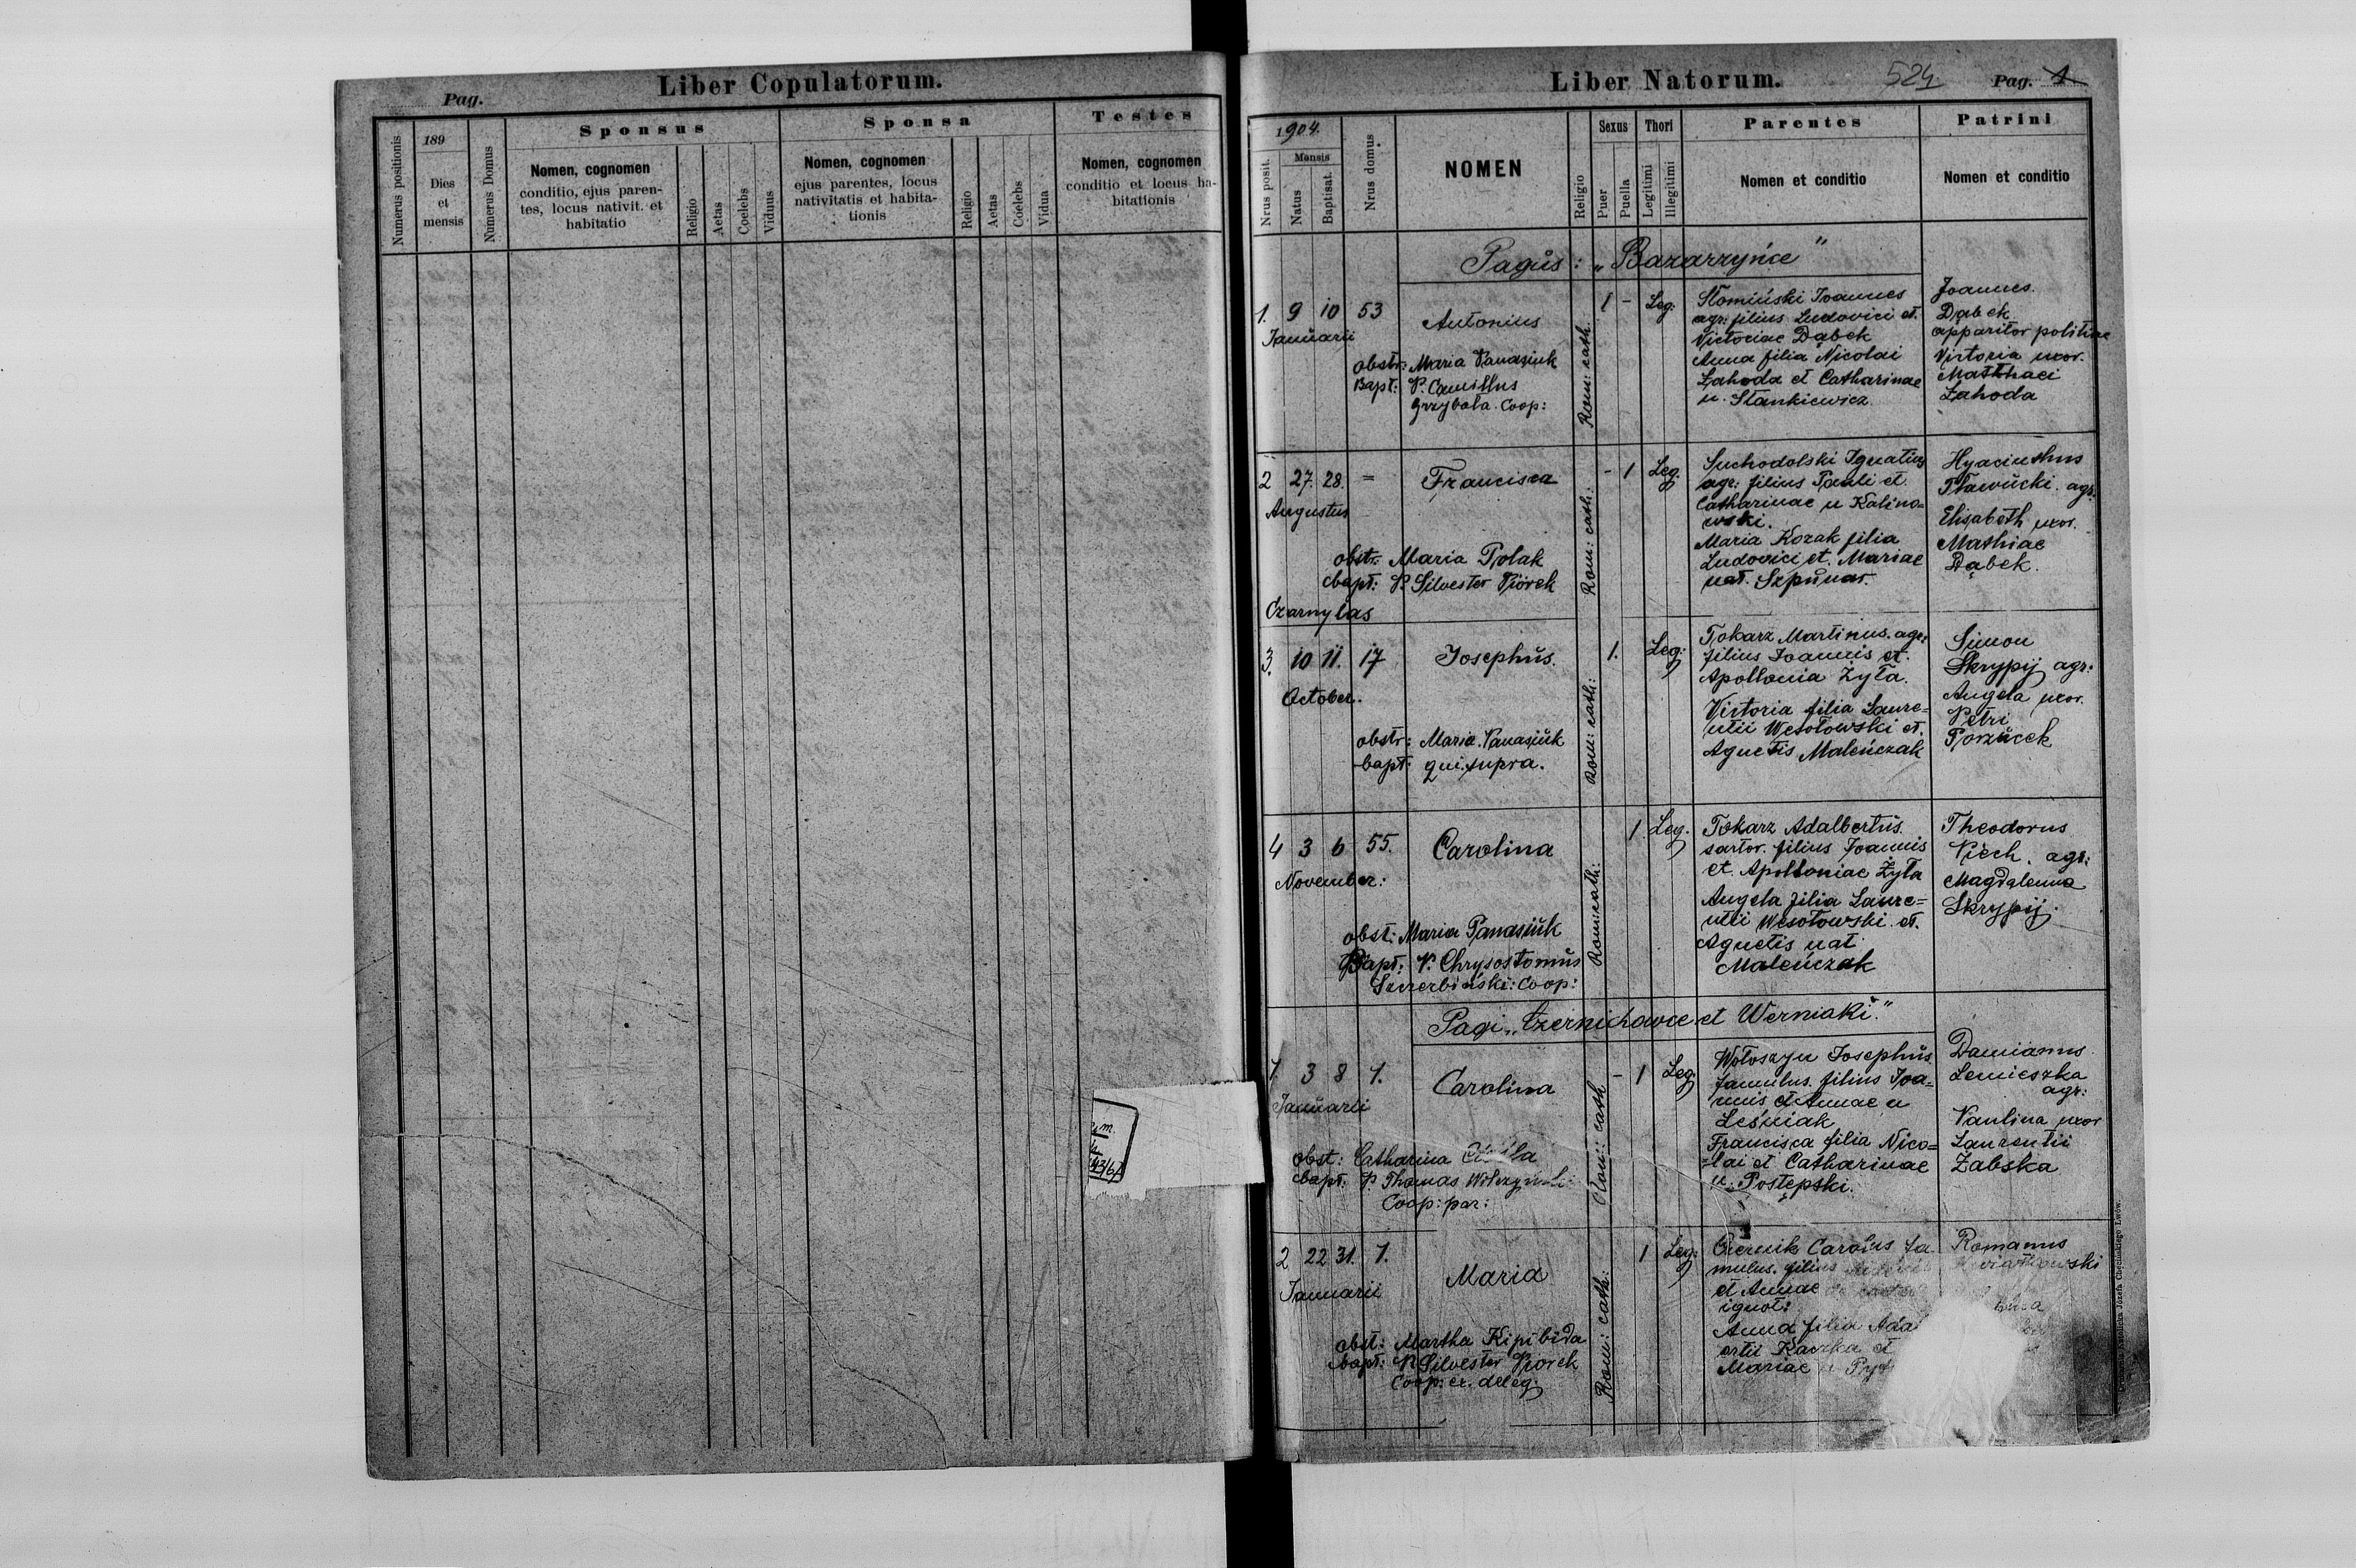 Pag.
Liber Copulatorum.
Numerus positionis
189
Dies
et
mensis
Numerus Domus
Sponsus
Nomen, cognomen
conditio, ejus paren-
tes, locus nativit. et
habitatio
Religio
Aetas
Coelebs
Viduus
Sponsa
Nomen, cognomen
ejus parentes, locus
nativitatis et habita-
tionis
Religio
Aetas
Coelebs
Vidua
Testes
Nomen, cognomen
conditio et locus ha-
bitationis
Liber Natorum.
524.
Pag. 1
Nrus posit.
1904.
Mensis
Natus
Baptisat.
Nrus domus
NOMEN
Religio
Sexus
Puer
Puella
Thori
Legitimi
Illegitimi
Parentes
Nomen et conditio
Patrini
Nomen et conditio
Pagus: „Bazarzyńce"
1. 9 10 53
Januarii
Antonius
obstr: Maria Panasiuk
Bapt: P. Camillus
Grzyboła. Coop:
Rom: cath.
1 - Leg:
Słomiński Joannes
agr: filius Ludovici et.
Victoriae Dąbek
Anna filia Nicolai
Łahoda et Catharinae
n. Stankiewicz
Joannes.
Dąbek
apparitor politiae
Victoria uxor.
Matthaei
Łahoda
2 27. 28. =
Augustus
Francisca
obstr: Maria Polak
bapt: P. Silvester Piórek
Rom: cath.
- 1 Leg.
Suchodolski Ignatius
agr: filius Pauli et.
Catharinae n Kalino=
wski.
Maria Kozak filia
Ludovici et. Mariae
nat. Szpunar.
Hyacinthus
agr.
Elisabeth uxor.
Mathiae
Dąbek.
Czarnylas
3. 10 11. 17
October.
Josephus.
obstr: Maria. Panasiuk
bapt: qui supra.
Rom: cath:
1. Leg:
Tokarz Martinus. agr:
filius Joannis et.
Apollonia Żyła.
Victoria filia Laure=
ntii Wesołowski et.
Agnetis Maleńczak
Simon
Skrypij agr:
Angela uxor.
Petri
Porzucek
4 3 6 55.
November:
Carolina
obst: Maria Panasiuk
Bapt: P. Chrysostomus
Coop:
Rom: cath:
1 Leg.
Tokarz Adalbertus.
sartor. filius Joannis
et. Apolloniae Żyła
Angela filia Laure=
ntii Wesołowski et.
Agnetis nat
Maleńczak
Theodorus
Piech. agr:
Magdalenna
Skrypij.
Pagi „Czernichowce et Werniaki."
1 3 8 1.
Januarii
Carolina
obst: Catharina
bapt. P. Thomas
Coop: par:
Rom: cath
- 1 Leg.
Wołoszyn Josephus
famulus. filius Joa=
nnis et Annae n
Leśniak
Francisca filia Nico=
lai et Catharinae
n. Postępski.
Damianus
Lemieszka
agr:
Paulina uxor
Laurentii
Zabska
2. 22 31. 1.
Januarii
Maria
obst: Martha Kipibida
bapt: P. Silvester Piorek
Coop: ex. deleg.
Rom: cath:
1 Leg:
Carolus fa
mulus. filius
et Annae
ignot:
Anna filia Ada
ertii Kaczka et
Mariae
Romanus